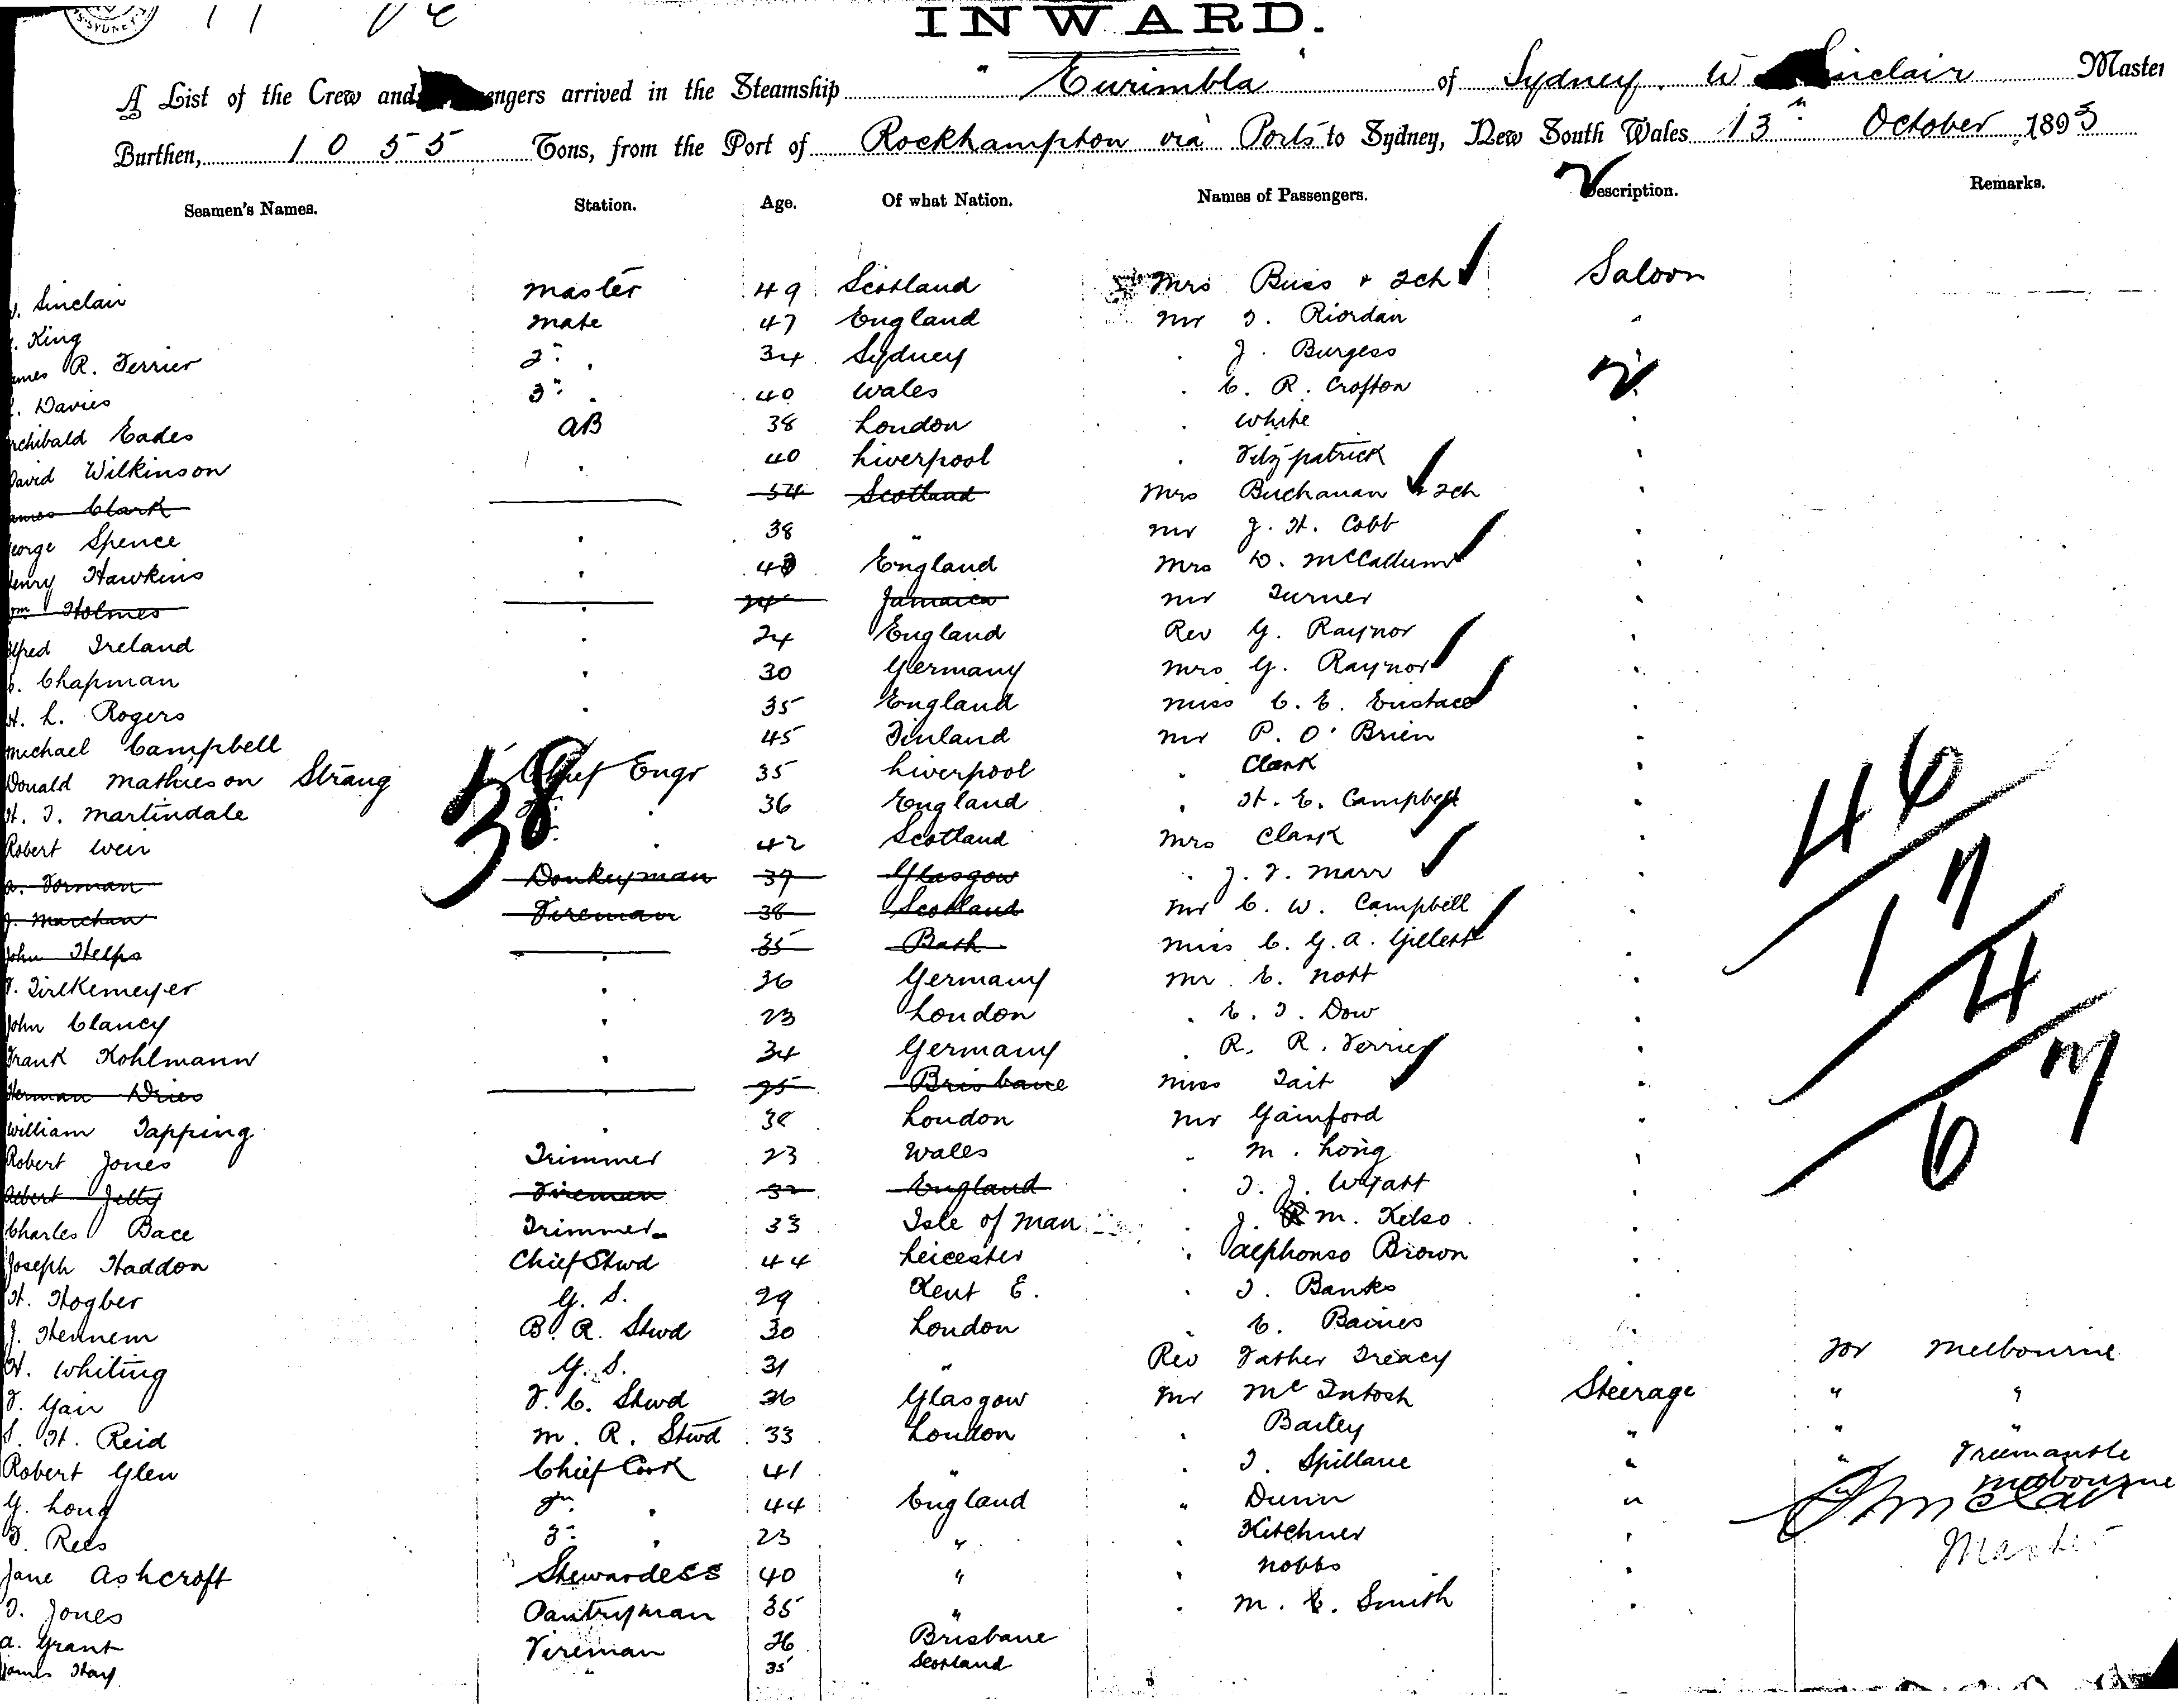 SYDNEY
INWARD.
A List of the Crew and engers arrived in the Steamship " Eurimbla " of Sydney. W Sinclair Master
Burthen, 1055 Tons, from the Port of Rockhampton via Ports to Sydney, New South Wales 13th October 1893
Seamen's Names. Station. Age. Of what Nation. Names of Passengers. Description. Remarks.
Sinclair Master 49 Scotland Mrs Buss + 2ch Saloon
King Mate 47 England Mr T. Riordan "
ames R. Ferrier 2nd " 34 Sydney " J. Burgess "
Davies 3rd " 40 Wales " C. R. Crofton "
rchibald Eades AB 38 London " White "
David Wilkinson " 40 Liverpool " Fitzpatrick "
ames Clark 54 Scotland Mrs Buchanan + 2ch "
eorge Spence " 38 " Mr J. H. Cobb "
Henry Hawkins " 43 England Mrs D. McCallum "
Wm Holmes " 24 Jamaica Mr Turner "
lfred Ireland " 24 England Rev G. Raynor "
C. Chapman " 30 Germany Mrs G. Raynor "
H. L. Rogers " 35 England Miss C. E. Eustace "
Michael Campbell 45 Finland Mr P. O'Brien "
Donald Mathieson Strang Chief Engr 35 Liverpool " Clark "
H. T. Martindale 2nd " 36 England " H. E. Campbell "
Robert Weir " 42 Scotland Mrs Clark "
A. Forman Donkeyman 39 Glasgow " J. F. Marr "
J. Marchan Fireman 38 Scotland Mr C. W. Campbell "
John Helps " 35 Bath Miss C. G. A. Gillett "
F. Firekemeyer " 36 Germany Mr E. Nott "
John Clancy " 23 London " E. T. Dow "
Frank Kohlmann " 34 Germany " R. R. Ferrier "
Herman Dries 25 Brisbane Miss Tait "
William Tapping " 38 London Mr Gainford "
Robert Jones Trimmer 23 Wales " M. Long "
Albert Jelly Fireman 32 England " T. J. Wyatt "
Charles Bace Trimmer 33 Isle of Man " J. M. Kelso "
Joseph Haddon Chief Stwd 44 Leicester " Alphonso Brown "
H. Hogber G. S. 29 Kent E. " T. Banks "
J. Hennem B. R. Stwd 30 London " C. Baines
H. Whiting G. S. 31 " Rev Father Treacy " for Melbourne
F. Gair F. C. Stwd 36 Glasgow Mr McIntosh Steerage " "
S. H. Reid M. R. Stwd 33 London " Bailey " " "
Robert Glen Chief Cook 41 " " T. Spillane " " Freemantle
G. Long 2nd " 44 England " Dunn " Melbourne
F. Rees 3rd " 23 " " Kitchner "
Jane Ashcroft Stewardess 40 " " Nobbs "
T. Jones Pantryman 35 " " M. E. Smith "
A. Grant Fireman 26 Brisbane
James Hay " 35 Scotland
38
46
17
4
67
Sinclair
Master